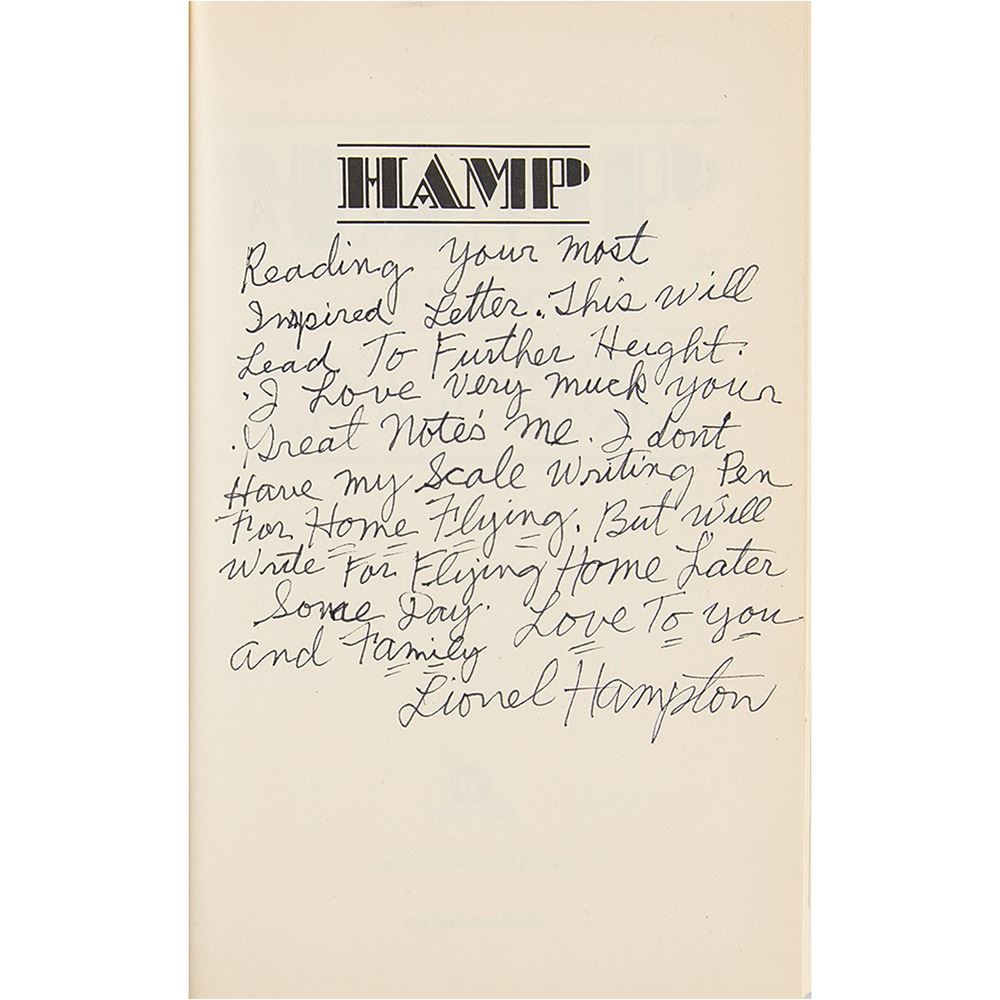 HAMP
Reading your most
Inspired Letter. This will
Lead To Further Height.
I Love very much your
Great Note's me. I dont
Have my Scale writing Pen
For Home Flying. But will
write For Flying Home Later
Some Day. Love To you
and Family
Lionel Hampton